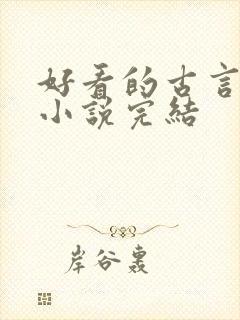 好看的古言
小說完結
岸谷轟